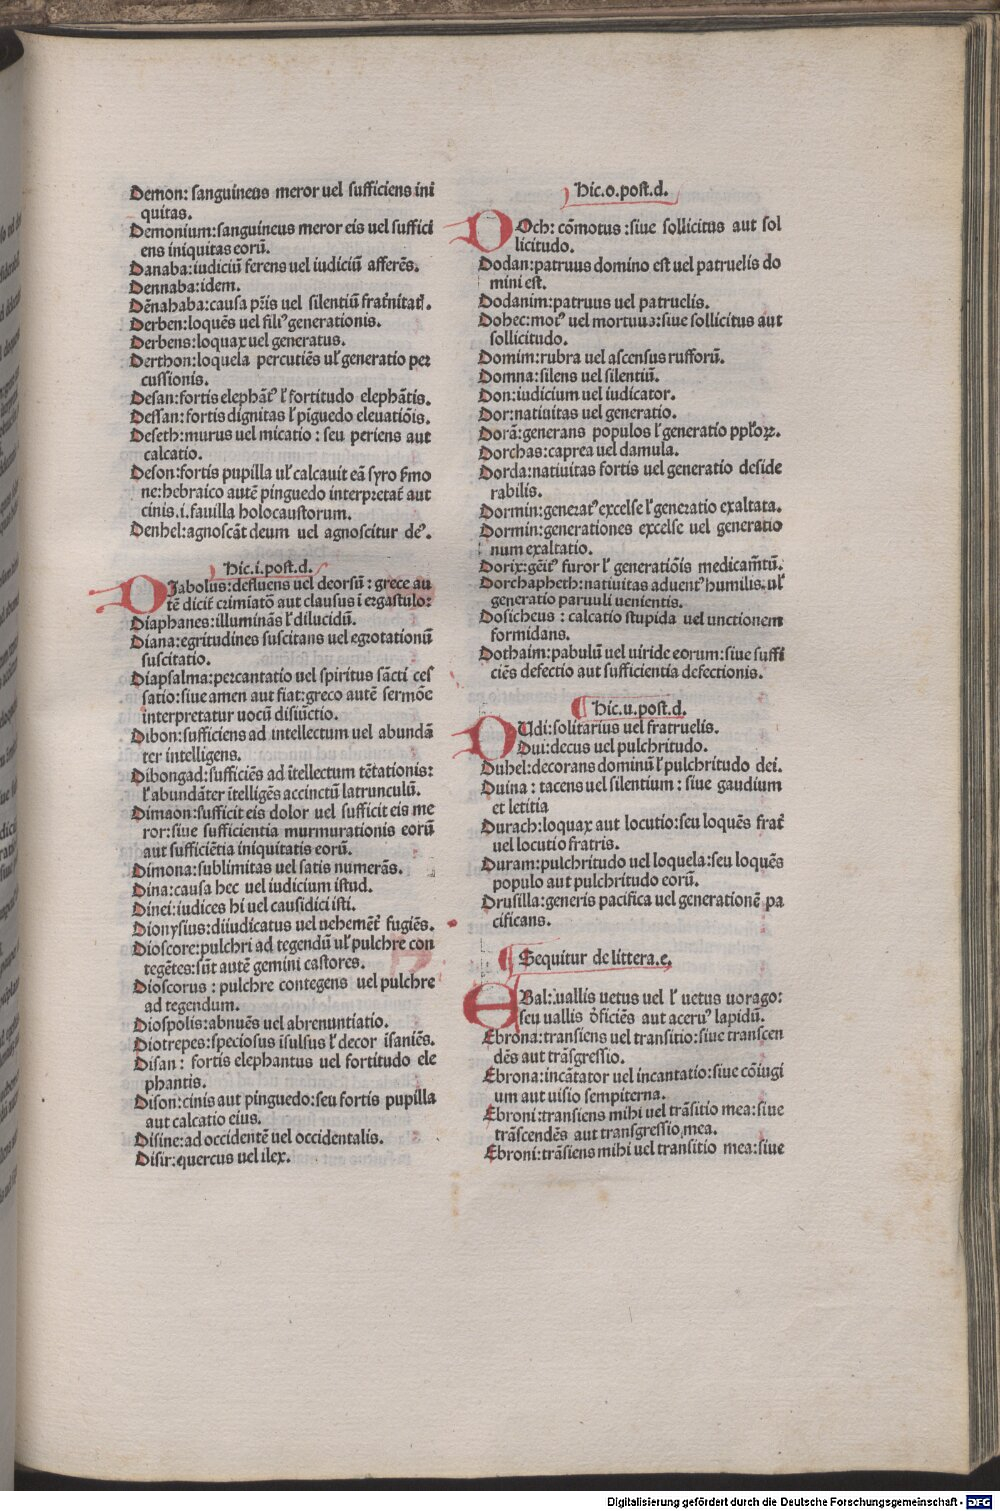 Demon: sanguineus meror uel sufficiens ini
quitas.
Demonium:sanguineus meror eis uel suffici
ens iniquitas eorū.
Danaba:iudiciū ferens uel iudiciū afferēs.
Dennaba:idem.
Dēnahaba:causa pr̄is uel silentiū frat̄nitat̄.
Derben:loquēs uel filiꝰ generationis.
Derbens:loquax uel generatus.
Derthon:loquela percutiēs ul̓ generatio per
cussionis.
Desan:fortis elephātꝰ l̓ fortitudo elephātis.
Dessan:fortis dignitas l̓ pīguedo eleuatiōis.
Deseth:murus uel micatio: seu periens aut
calcatio.
Deson:fortis pupilla ul̓ calcauit eā syro s̓mo
ne:hebraico autē pinguedo interpretat̄ aut
cinis.i.fauilla holocaustorum.
Denhel:agnoscāt deum uel agnoscitur deꝰ.
Hic.i.post.d.
DJabolus:defluens uel deorsū: grece au
tē dicit̄ crimiatō aut clausus ī ergastulo:
Diaphanes:illuminās l̓ dilucidū.
Diana:egritudines suscitans uel egrotationū
suscitatio.
Diapsalma:percantatio uel spiritus sācti ces
satio:siue amen aut fiat:greco autē sermōe
interpretatur uocū disiūctio.
Dibon:sufficiens ad intellectum uel abundā
ter intelligens.
Dibongad:sufficiēs ad ītellectum tētationis:
l̓ abundāter ītelligēs accinctū latrunculū.
Dimaon:sufficit eis dolor uel sufficit eis me
ror:siue sufficientia murmurationis eorū
aut sufficiētia iniquitatis eorū.
Dimona:sublimitas uel satis numerās.
Dina:causa hec uel iudicium istud.
Dinei:iudices hi uel causidici isti.
Dionysius:diiudicatus uel uehemēt̄ fugiēs.
Dioscore:pulchri ad tegendū ul̓ pulchre con
tegētes:sūt autē gemini castores.
Dioscorus: pulchre contegens uel pulchre
ad tegendum.
Diospolis:abnuēs uel abrenuntiatio.
Diotrepes:speciosus īsulsus l̓ decor īsaniēs.
Disan: fortis elephantus uel fortitudo ele
phantis.
Dison:cinis aut pinguedo:seu fortis pupilla
aut calcatio eius.
Disine:ad occidentē uel occidentalis.
Disir:quercus uel ilex.
Hic.o.post.d.
DOch: cōmotus :siue sollicitus aut sol
licitudo.
Dodan:patruus domino est uel patruelis do
mini est.
Dodanim:patruus uel patruelis.
Dohec:motꝰ uel mortuus:siue sollicitus aut
sollicitudo.
Domim:rubra uel ascensus rufforū.
Domna:silens uel silentiū.
Don:iudicium uel iudicator.
Dor:natiuitas uel generatio.
Dorā:generans populos l̓ generatio ppl̓oꝝ.
Dorchas:caprea uel damula.
Dorda:natiuitas fortis uel generatio deside
rabilis.
Dormin:generatꝰ excelse l̓ generatio exaltata.
Dormin:generationes excelse uel generatio
num exaltatio.
Dorix:gēit̓ furor l̓ generatiōis medicam̄tū.
Dorchapheth:natiuitas aduent̓ humilis. ul̓
generatio paruuli uenientis.
Dosicheus: calcatio stupida uel unctionem
formidans.
Dothaim:pabulū uel uiride eorum:siue suffi
ciēs defectio aut sufficientia defectionis.
Hic.u.post.d.
DUdi:solitarius uel fratruelis.
Dui:decus uel pulchritudo.
Duhel:decorans dominū l̓ pulchritudo dei.
Duina: tacens uel silentium: siue gaudium
et letitia
Durach:loquax aut locutio:seu loquēs frat̄
uel locutio fratris.
Duram:pulchritudo uel loquela:seu loquēs
populo aut pulchritudo eorū.
Drusilla:generis pacifica uel generationē pa
cificans.
Sequitur de littera.e.
EBal:uallis uetus uel l̓ uetus uorago:
seu uallis d̓ficiēs aut aceruꝰ lapidū.
Ebrona:transiens uel transitio:siue transcen
dēs aut trāsgressio.
Ebrona:incātator uel incantatio:siue cōiugi
um aut uisio sempiterna.
Ebroni:transiens mihi uel trāsitio mea:siue
trāscendēs aut transgressio mea.
Ebroni:trāsiens mihi uel transitio mea:siue
Digitalisierung gefördert durch die Deutsche Forschungsgemeinschaft - DFG